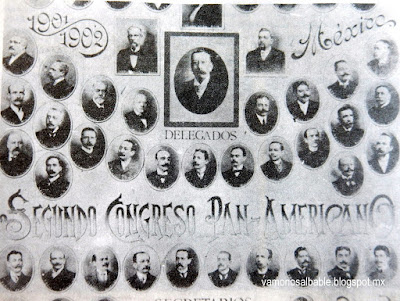 1901
1902
México
DELEGADOS
SEGUNDO CONGRESO PAN-AMERICANO
vamonosalbable.blogspot.mx
SECRETARIOS